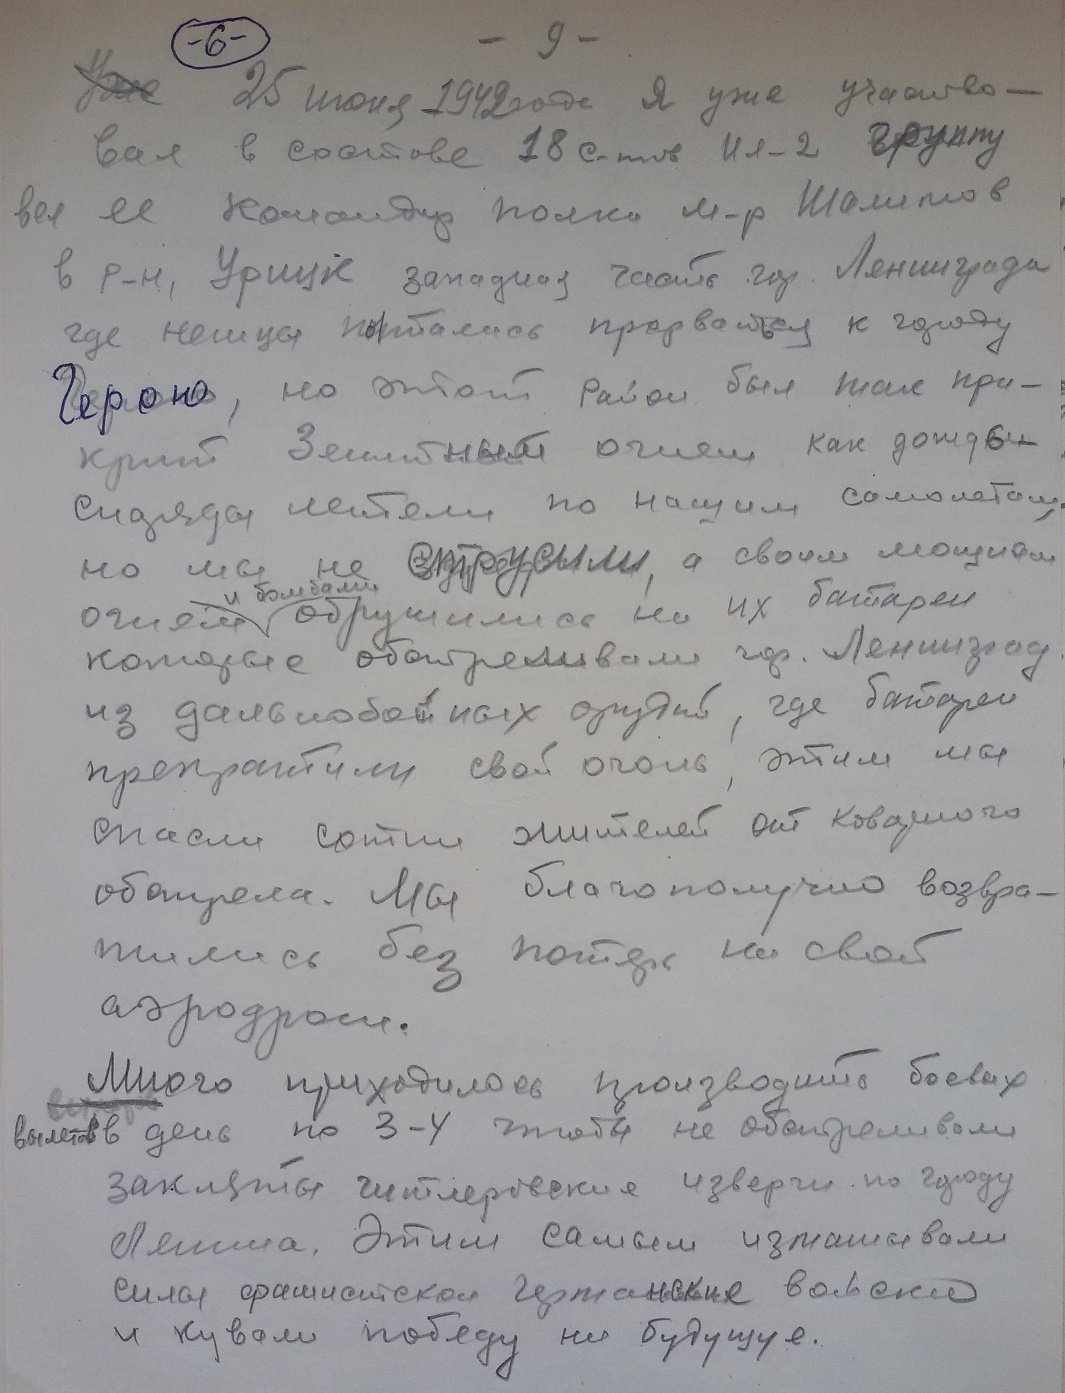 -6- - 9 -
Уже 25 июня 1942 года я уже участво-
вал в составе 18 с-тов Ил-2 группу
вел ее командир полка м-р Шалимов
в р-н, Урицк западная часть гор. Ленинграда
где немцы пытались прорваться к городу
Герою, но этот район был так при-
крыт Зенитным огнем как дождь
снаряды летели по нашим самолетам,
но мы не струсили, а своим мощным
и бомбами
огнем обрушились на их батареи
которые обстреливали гор. Ленинград
из дальнобойных орудий, где батареи
прекратили свой огонь, этим мы
спасли сотни жителей от коварного
обстрела. Мы благополучно возвра-
тились без потерь на свой
аэродром.
Много приходилось производить боевых
вылетов в день по 3-4 чтобы не обстреливали
закляты гитлеровские изверги по городу
Ленина. Этим самым изматывали
силы фашистской германские войск
и кували победу на будущуе.